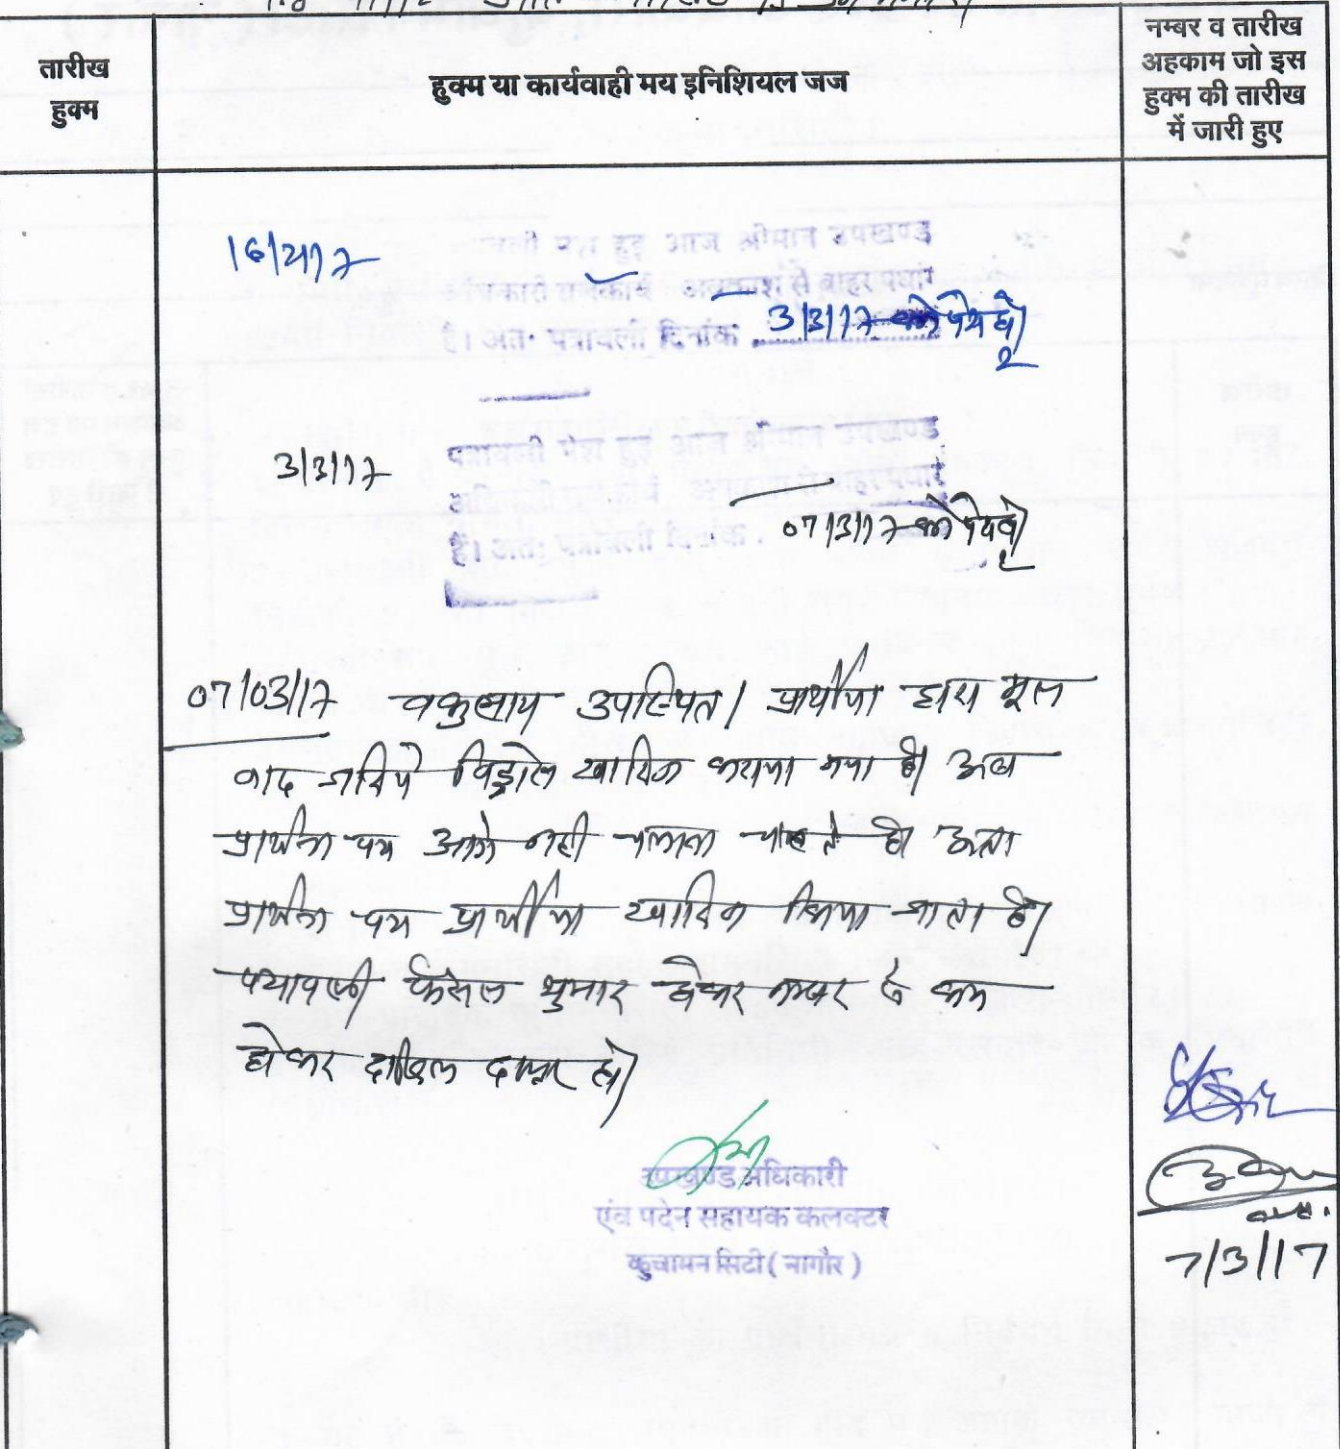 तारीख
हुक्म
हुक्म या कार्यवाही मय इनिशियल जज
नम्बर व तारीख
अहकाम जो इस
हुक्म की तारीख
में जारी हुए
16/2/17
पेश हुई आज श्रीमान उपखण्ड
अधिकारी राजकार्य अवकाश से बाहर पधारे
है। अतः पत्रावली दिनांक 3/3/17 को पेश हो।
3/3/17
पत्रावली पेश हुई आज श्रीमान उपखण्ड
अधिकारी राजकार्य अवकाश से बाहर पधारे
है। अतः पत्रावली दिनांक 07/3/17 को पेश हो।
07/03/17 वकुलाय उपस्थित। प्रार्थीया द्वारा मूल
वाद जरिये विड्रोल खारिज कराया गया है। अब
प्रार्थना पत्र आगे नही चलाना चाहते है। अतः
प्रार्थना पत्र प्रार्थीया खारिज किया जाता है।
पत्रावली फैसल शुमार होकर नम्बर से कम
होकर दाखिल दफ्तर हो।
उपखण्ड अधिकारी
एंव पदेन सहायक कलक्टर
कुचामन सिटी ( नागौर )
7/3/17